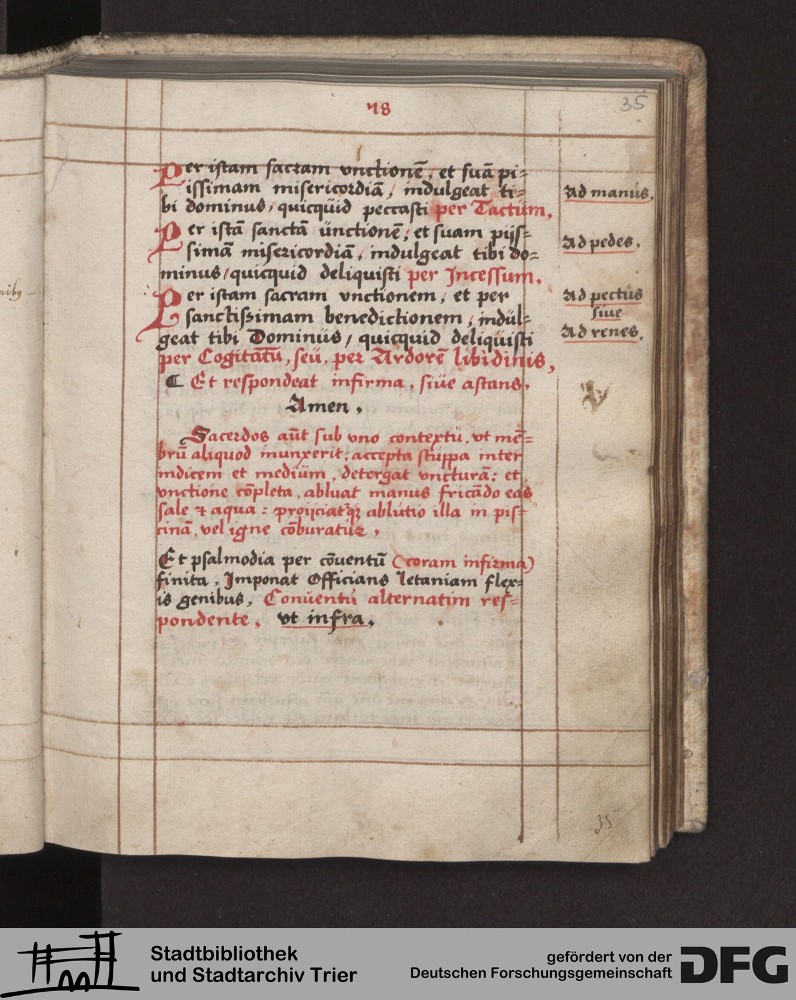 78
35
Per istam sacram vnctionē, et suā pi=
issimam misericordiā, indulgeat ti=
bi dominus, quicquid peccasti per Tactum,
Ad manus,
Per istā sanctā unctionē, et suam piis=
simā misericordiā, indulgeat tibi do=
minus, quicquid deliquisti per Incessum,
Ad pedes,
Per istam sacram vnctionem, et per
sanctissimam benedictionem, indul=
geat tibi Dominus, quicquid deliquisti
per Cogitatū, seu, per Ardorē libidinis,
Ad pectus
siue
Ad renes,
Et respondeat infirma, siue astans,
Amen,
Sacerdos aūt sub vno contextu, vt mē=
brū aliquod inunxerit, accepta stuppa inter
indicem et medium, detergat vncturā: et
vnctione cōpleta, abluat manus fricādo eas
sale ⁊ aqua: proijciatqꝫ ablutio illa in pis=
cinā, vel igne cōburatur,
Et psalmodia per cōuentū (coram infirma)
finita, Imponat Officians letaniam flex=
is genibus, Conuentu alternatim res=
pondente, vt infra,
35
Stadtbibliothek
und Stadtarchiv Trier
gefördert von der
Deutschen Forschungsgemeinschaft
DFG